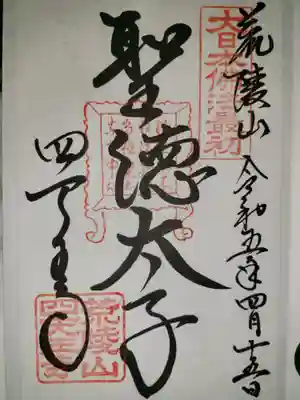 荒陵山 令和五年四月十五日
大日本佛法最初
聖徳太子
四天王寺
荒陵山
四天王寺